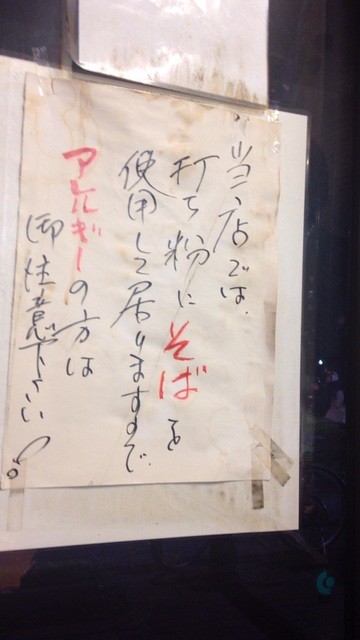 当店では、
打ち粉にそばを
使用して居りますので、
アレルギーの方は
御注意下さい。